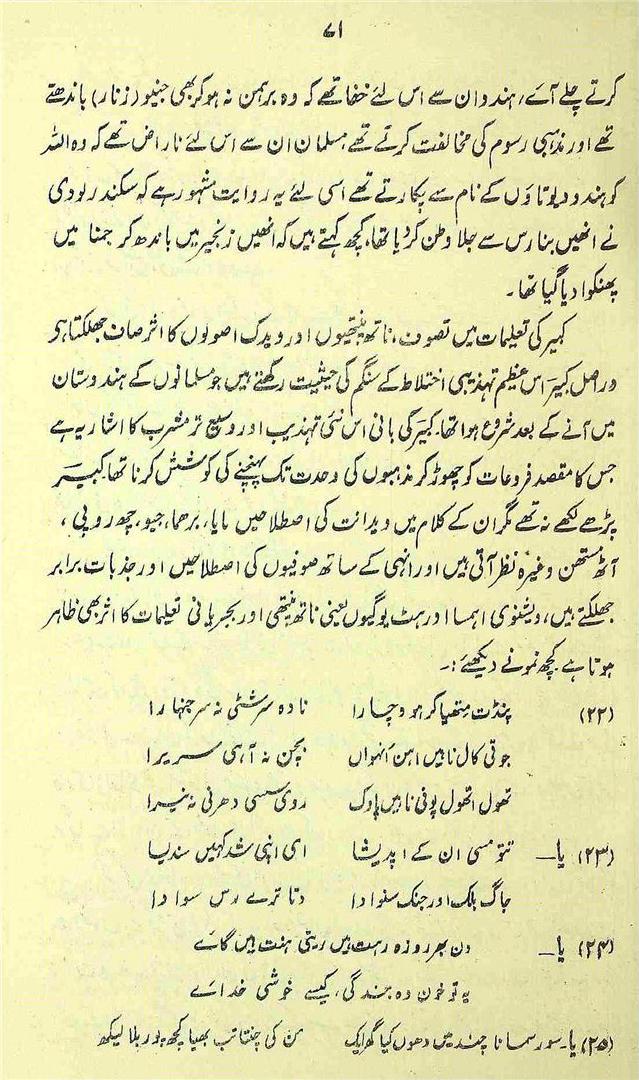 ۷۱
کرتے چلے آئے، ہندو ان سے اس لئے خفا تھے کہ وہ برہمن نہ ہو کر بھی جنیو (زنار) باندھتے
تھے اور مذہبی رسوم کی مخالفت کرتے تھے مسلمان ان سے اس لئے ناراض تھے کہ وہ اللہ
کو ہندو دیوتاؤں کے نام سے پکارتے تھے اسی لئے یہ روایت مشہور ہے کہ سکندر لودی
نے انھیں بنارس سے جلا وطن کر دیا تھا، کچھ کہتے ہیں کہ انھیں زنجیر میں باندھ کر جمنا میں
پھنکوا دیا گیا تھا۔
کبیر کی تعلیمات میں تصوف، ناتھ پنتھیوں اور ویدک اصولوں کا اثر صاف جھلکتا ہے
دراصل کبیر اس عظیم تہذیبی اختلاط کے سنگم کی حیثیت رکھتے ہیں جو مسلمانوں کے ہندوستان
میں آنے کے بعد شروع ہوا تھا۔ کبیر کی بانی اس نئی تہذیب اور وسیع تر مشرب کا اشاریہ ہے
جس کا مقصد فروعات کو چھوڑ کر مذہبوں کی وحدت تک پہنچنے کی کوشش کرنا تھا۔ کبیر
پڑھے لکھے نہ تھے مگر ان کے کلام میں ویدانت کی اصطلاحیں مایا، برھما، جیو، چھ روپی،
آٹھ متھن وغیرہ نظر آتی ہیں اور انہی کے ساتھ صوفیوں کی اصطلاحیں اور جذبات برابر
جھلکتے ہیں، ویشنوی اہمسا اور ہٹ یوگیوں یعنی ناتھ پنتھی اور بجریانی تعلیمات کا اثر بھی ظاہر
ہوتا ہے۔ کچھ نمونے دیکھئے:۔
(۲۲) پنڈت متھیا کر ہو وچارا نادہ سرشٹی نہ سرجنہارا
جوتی کال ناہیں اہن اَنہواں بچن نہ آہی سریرا
تھول اتھول پونی ناہیں پاوک روی سسی دھرنی نہ نیرا
(۲۳) یا۔ تتومسی ان کے اپدیشا ای اپنی شد کہیں سندیسا
جاگ بلک اور جنک سنوادا دتا ترے وس سوادا
(۲۴) یا۔ دن بھر روزہ رہت ہیں ریتی ہنت ہیں گائے
یہ تو خون وہ بندگی، کیسے خوشی خدائے
(۲۵) یا۔ سور سمانا چند میں دھوں کیا گھر ایک من کی چنتا تب بھیا کچھ پور بلا لیکھ